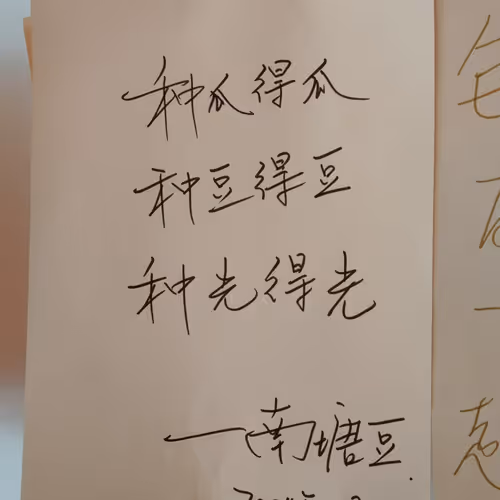 种瓜得瓜
种豆得豆
种光得光
一南塘豆